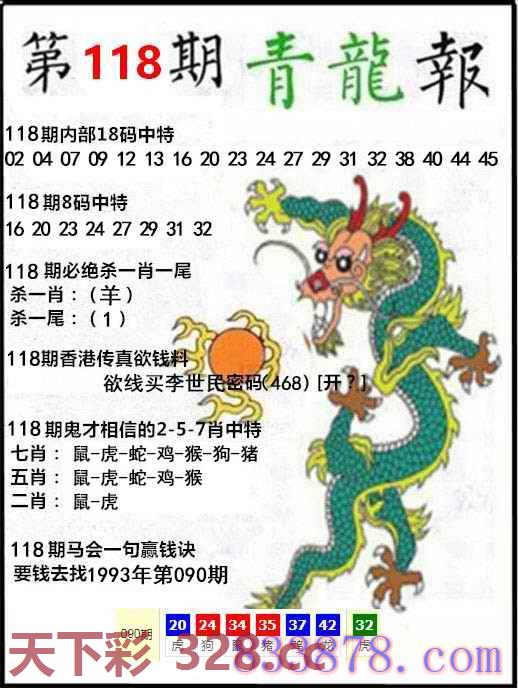 第118期青龍報
118期内部18码中特
02 04 07 09 12 13 16 20 23 24 27 29 31 32 38 40 44 45
118期8码中特
16 20 23 24 27 29 31 32
118期必绝杀一肖一尾
杀一肖：（羊）
杀一尾：（1）
118期香港传真欲钱料
欲线买李世民密码(468) [开？]
118期鬼才相信的2-5-7肖中特
七肖： 鼠-虎-蛇-鸡-猴-狗-猪
五肖： 鼠-虎-蛇-鸡-猴
二肖： 鼠-虎
118期马会一句赢钱诀
要钱去找1993年第090期
090期 20 24 34 35 37 42 32
虎 狗 猪 龙 虎
天下彩 328.cc
833878.com